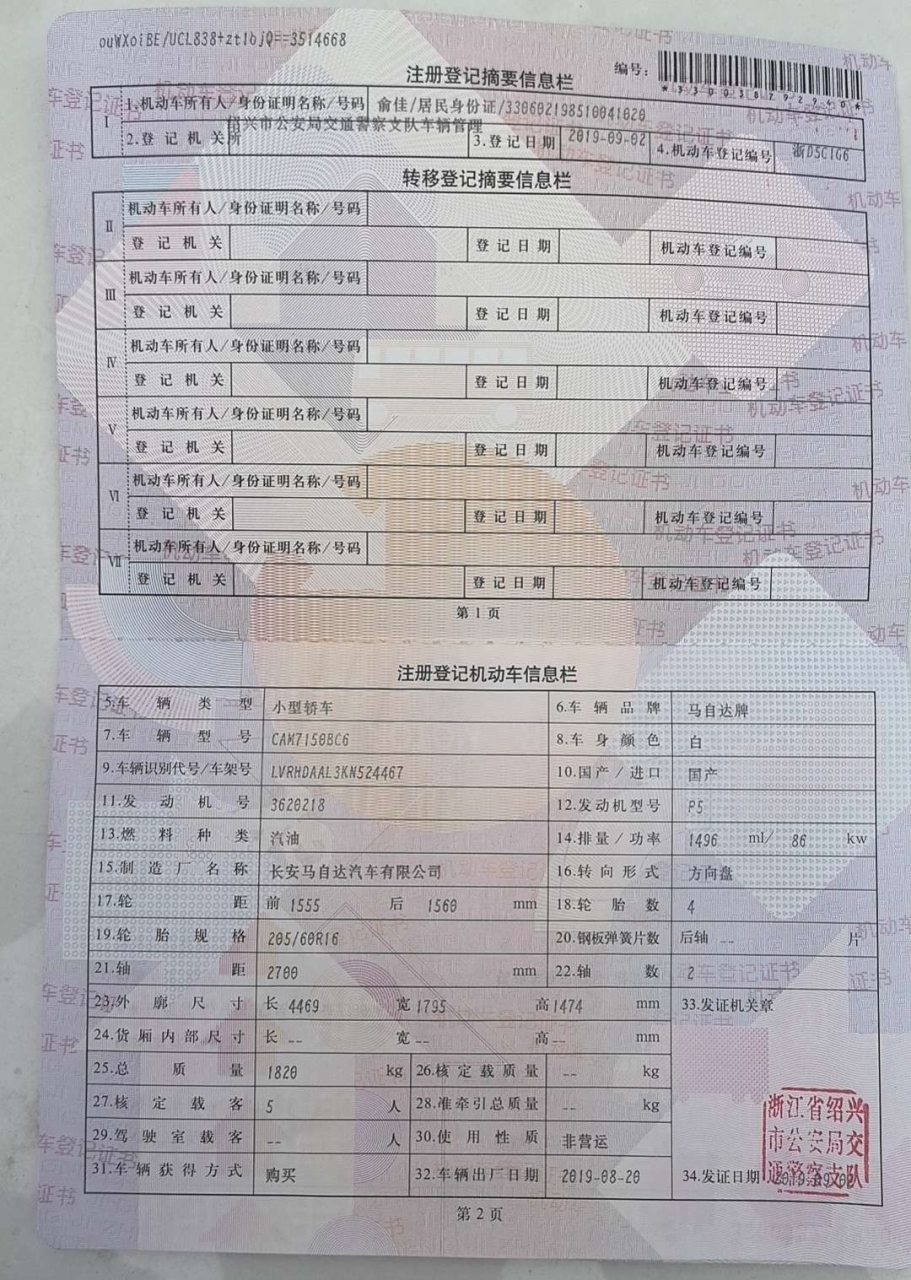 ouWXoiBE/UCL838+zt1bjQ==3514668
注册登记摘要信息栏
编号:
Ⅰ 1.机动车所有人/身份证明名称/号码 俞佳/居民身份证/330602198510041020
2.登记机关 绍兴市公安局交通警察支队车辆管理所 3.登记日期 2019-09-02 4.机动车登记编号 浙D5C1G6
转移登记摘要信息栏
Ⅱ 机动车所有人/身份证明名称/号码
登记机关 登记日期 机动车登记编号
Ⅲ 机动车所有人/身份证明名称/号码
登记机关 登记日期 机动车登记编号
Ⅳ 机动车所有人/身份证明名称/号码
登记机关 登记日期 机动车登记编号
Ⅴ 机动车所有人/身份证明名称/号码
登记机关 登记日期 机动车登记编号
Ⅵ 机动车所有人/身份证明名称/号码
登记机关 登记日期 机动车登记编号
Ⅶ 机动车所有人/身份证明名称/号码
登记机关 登记日期 机动车登记编号
第1页
注册登记机动车信息栏
5.车辆类型 小型轿车 6.车辆品牌 马自达牌
7.车辆型号 CAM7150BC6 8.车身颜色 白
9.车辆识别代号/车架号 LVRHDAAL3KN524467 10.国产/进口 国产
11.发动机号 3620218 12.发动机型号 P5
13.燃料种类 汽油 14.排量/功率 1496 ml/ 86 kw
15.制造厂名称 长安马自达汽车有限公司 16.转向形式 方向盘
17.轮距 前 1555 后 1560 mm 18.轮胎数 4
19.轮胎规格 205/60R16 20.钢板弹簧片数 后轴 -- 片
21.轴距 2700 mm 22.轴数 2
23.外廓尺寸 长 4469 宽 1795 高 1474 mm 33.发证机关章
24.货厢内部尺寸 长 -- 宽 -- 高 -- mm
25.总质量 1820 kg 26.核定载质量 -- kg
27.核定载客 5 人 28.准牵引总质量 -- kg
29.驾驶室载客 -- 人 30.使用性质 非营运
31.车辆获得方式 购买 32.车辆出厂日期 2019-08-20 34.发证日期
浙江省绍兴
市公安局交
通警察支队
第2页